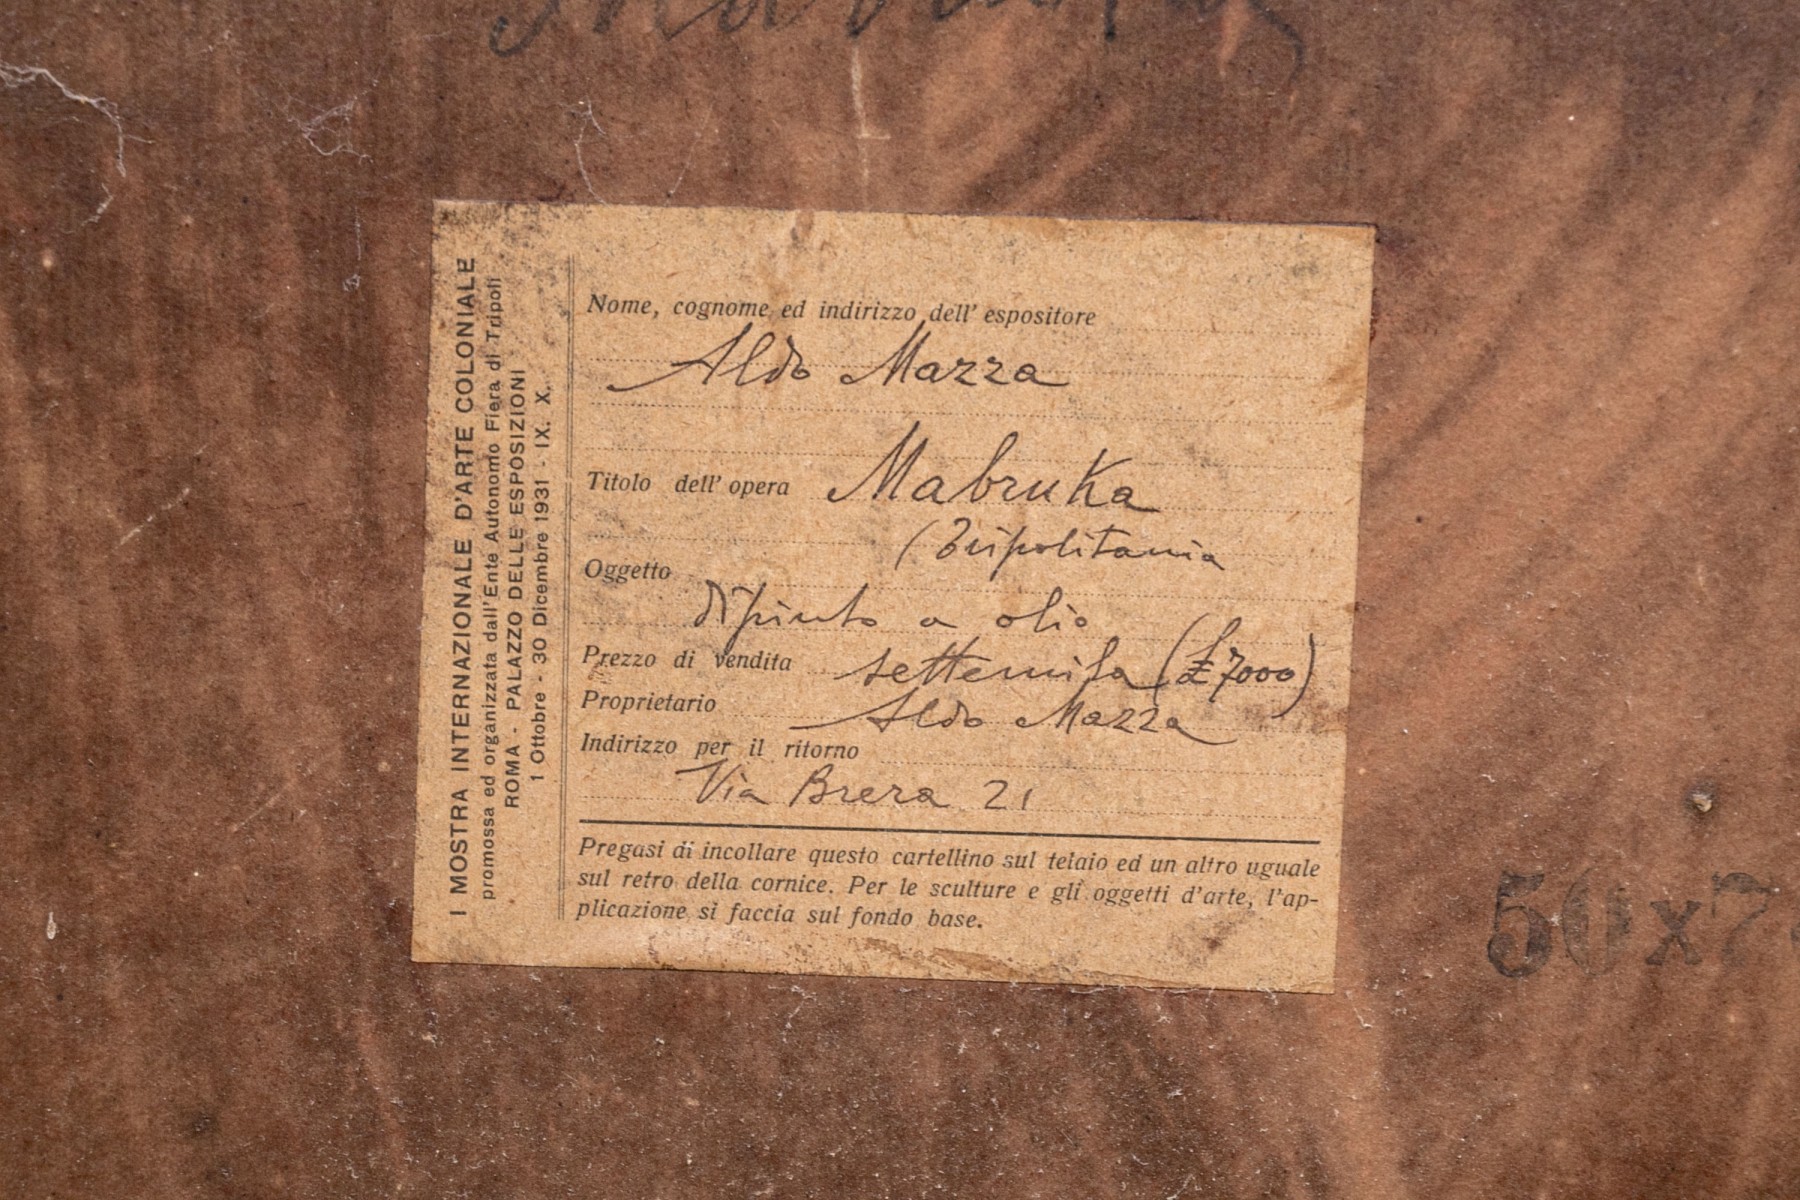 I MOSTRA INTERNAZIONALE D'ARTE COLONIALE
promossa ed organizzata dall'Ente Autonomo Fiera di Tripoli
ROMA - PALAZZO DELLE ESPOSIZIONI
1 Ottobre - 30 Dicembre 1931 - IX. X.
Nome, cognome ed indirizzo dell'espositore
Aldo Mazza
Titolo dell'opera Mabruka
(Tripolitania
Oggetto
dipinto a olio
Prezzo di vendita settemila (£7000)
Proprietario Aldo Mazza
Indirizzo per il ritorno
Via Brera 21
Pregasi di incollare questo cartellino sul telaio ed un altro uguale
sul retro della cornice. Per le sculture e gli oggetti d'arte, l'ap-
plicazione si faccia sul fondo base.
50x7